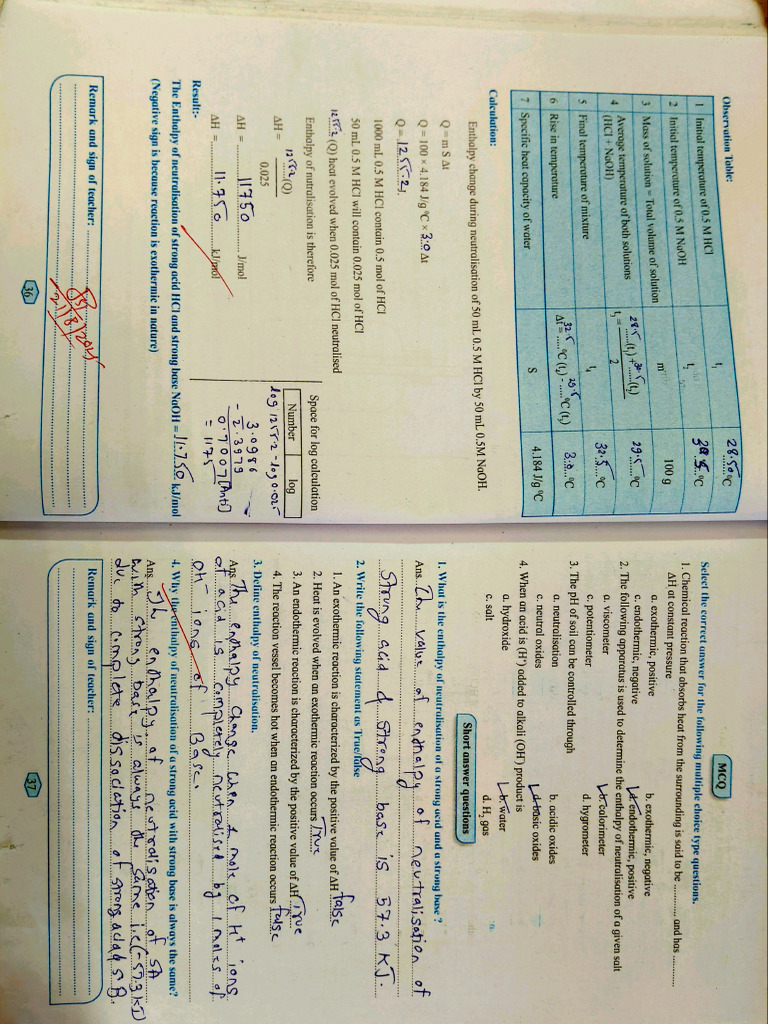 Observation Table:
1 Initial temperature of 0.5 M HCl t₁ 28.50 °C
2 Initial temperature of 0.5 M NaOH t₂ 30.5 °C
3 Mass of solution = Total volume of solution m 100 g
4 Average temperature of both solutions (HCl + NaOH) t₃ = 28.5 (t₁) + 30.5 (t₂) / 2 29.5 °C
5 Final temperature of mixture t₄ 32.5 °C
6 Rise in temperature Δt = 32.5 °C (t₄) - 29.5 °C (t₃) 3.0 °C
7 Specific heat capacity of water S 4.184 J/g °C
Calculation:
Enthalpy change during neutralisation of 50 mL 0.5 M HCl by 50 mL 0.5M NaOH.
Q = m S Δt
Q = 100 × 4.184 J/g °C × 3.0 Δt
Q = 1255.2 J.
1000 mL 0.5 M HCl contain 0.5 mol of HCl
50 mL 0.5 M HCl will contain 0.025 mol of HCl
1255.2 (Q) heat evolved when 0.025 mol of HCl neutralised
Enthalpy of nutralisation is therefore
ΔH = 1255.2 (Q)
0.025
ΔH = 11750 J/mol
ΔH = 11.750 kJ/mol
Space for log calculation
Number log
log 1255.2 - log 0.025
3.0986
- 2.3979
0.7007 [Anti]
= 1175
Result:-
The Enthalpy of neutralisation of strong acid HCl and strong base NaOH = 11.750 kJ/mol
(Negative sign is because reaction is exothermic in nature)
Remark and sign of teacher:
36
MCQ
Select the correct answer for the following multiple choice type questions.
1. Chemical reaction that absorbs heat from the surrounding is said to be ............ and has ............
ΔH at constant pressure
a. exothermic, positive b. exothermic, negative
c. endothermic, negative d. endothermic, positive
2. The following apparatus is used to determine the enthalpy of neutralisation of a given salt
a. viscometer b. calorimeter
c. potentiometer d. hygrometer
3. The pH of soil can be controlled through
a. neutralisation b. acidic oxides
c. neutral oxides d. basic oxides
4. When an acid is (H⁺) added to alkali (OH⁻) product is
a. hydroxide b. water
c. salt d. H₂ gas
Short answer questions
1. What is the enthalpy of neutralisation of a strong acid and a strong base ?
Ans. The value of enthalpy of neutralisation of
Strong acid & Strong base is 57.3 KJ.
2. Write the following statement as True/false
1. An exothermic reaction is characterized by the positive value of ΔH false
2. Heat is evolved when an exothermic reaction occurs True
3. An endothermic reaction is characterized by the positive value of ΔH True
4. The reaction vessel becomes hot when an endothermic reaction occurs false
3. Define enthalpy of neutralisation.
Ans The enthalpy change when 1 mole of H⁺ ions
of acid is completely neutralised by 1 moles of
OH⁻ ions of Base.
4. Why the enthalpy of neutralisation of a strong acid with strong base is always the same?
Ans. The enthalpy of neutralisation of SA
with strong base is always the same i.e (-57.3 KJ)
due to complete dissociation of strong acid & S.B.
Remark and sign of teacher:
37